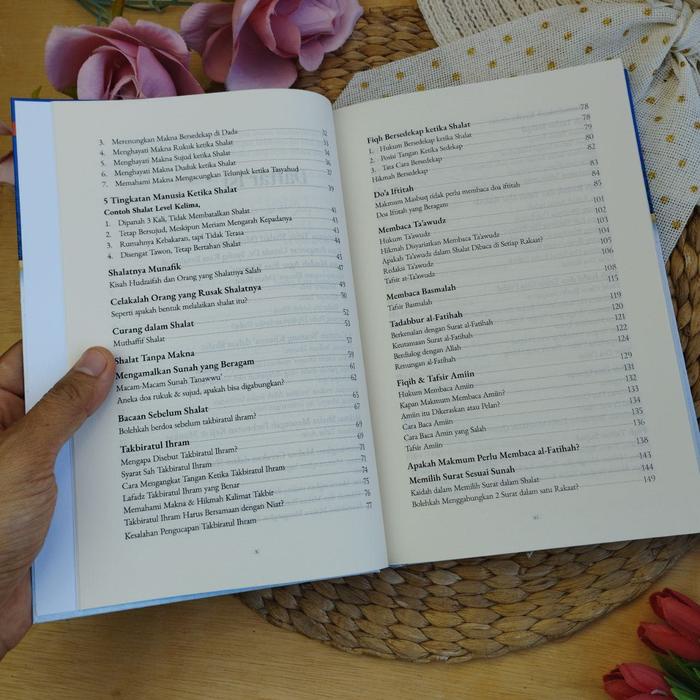 3. Merenungkan Makna Bersedekap di Dada 32
4. Menghayati Makna Rukuk ketika Shalat 33
5. Menghayati Makna Sujud ketika Shalat 34
6. Menghayati Makna Duduk ketika Shalat 36
7. Memahami Makna Mengacungkan Telunjuk ketika Tasyahud 37
5 Tingkatan Manusia Ketika Shalat 39
Contoh Shalat Level Kelima,
1. Dipanah 3 Kali, Tidak Membatalkan Shalat 41
2. Tetap Bersujud, Meskipun Meriam Mengarah Kepadanya 42
3. Rumahnya Kebakaran, tapi Tidak Terasa 43
4. Disengat Tawon, Tetap Bertahan Shalat 44
Shalatnya Munafik 45
Kisah Hudzaifah dan Orang yang Shalatnya Salah 47
Celakalah Orang yang Rusak Shalatnya 49
Seperti apakah bentuk melalaikan shalat itu? 50
Curang dalam Shalat 52
Muthaffif Shalat 53
Shalat Tanpa Makna 57
Mengamalkan Sunah yang Beragam 59
Macam-Macam Sunah Tanawwu' 61
Aneka doa rukuk & sujud, apakah bisa digabungkan? 62
Bacaan Sebelum Shalat 65
Bolehkah berdoa sebelum takbiratul ihram? 67
Takbiratul Ihram 69
Mengapa Disebut Takbiratul Ihram? 69
Syarat Sah Takbiratul Ihram 71
Cara Mengangkat Tangan Ketika Takbiratul Ihram 71
Lafadz Takbiratul Ihram yang Benar 74
Memahami Makna & Hikmah Kalimat Takbir 75
Takbiratul Ihram Harus Bersamaan dengan Niat? 76
Kesalahan Pengucapan Takbiratul Ihram 77
x
Fiqh Bersedekap ketika Shalat 78
1. Hukum Bersedekap ketika Shalat 78
2. Posisi Tangan Ketika Sedekap 79
3. Tata Cara Bersedekap 80
Hikmah Bersedekap 82
Do'a Iftitah 83
Makmum Masbuq tidak perlu membaca doa iftitah 84
Doa Iftitah yang Beragam 85
Membaca Ta'awudz 101
Hukum Ta'awudz 102
Hikmah Disyariatkan Membaca Ta'awudz 103
Apakah Ta'awudz dalam Shalat Dibaca di Setiap Rakaat? 104
Redaksi Ta'awudz 105
Tafsir at-Ta'awudz 106
Membaca Basmalah 108
Tafsir Basmalah 115
Tadabbur al-Fatihah 119
Berkenalan dengan Surat al-Fatihah 120
Keutamaan Surat al-Fatihah 121
Berdialog dengan Allah 122
Renungan al-Fatihah 124
Fiqih & Tafsir Amiin 129
Hukum Membaca Amiin 131
Kapan Makmum Membaca Amiin? 132
Amiin itu Dikeraskan atau Pelan? 133
Cara Baca Amiin 134
Cara Baca Amin yang Salah 135
Tafsir Amiin 136
Apakah Makmum Perlu Membaca al-Fatihah? 138
Memilih Surat Sesuai Sunah 143
Kaidah dalam Memilih Surat dalam Shalat 144
Bolehkah Menggabungkan 2 Surat dalam satu Rakaat? 149
xi